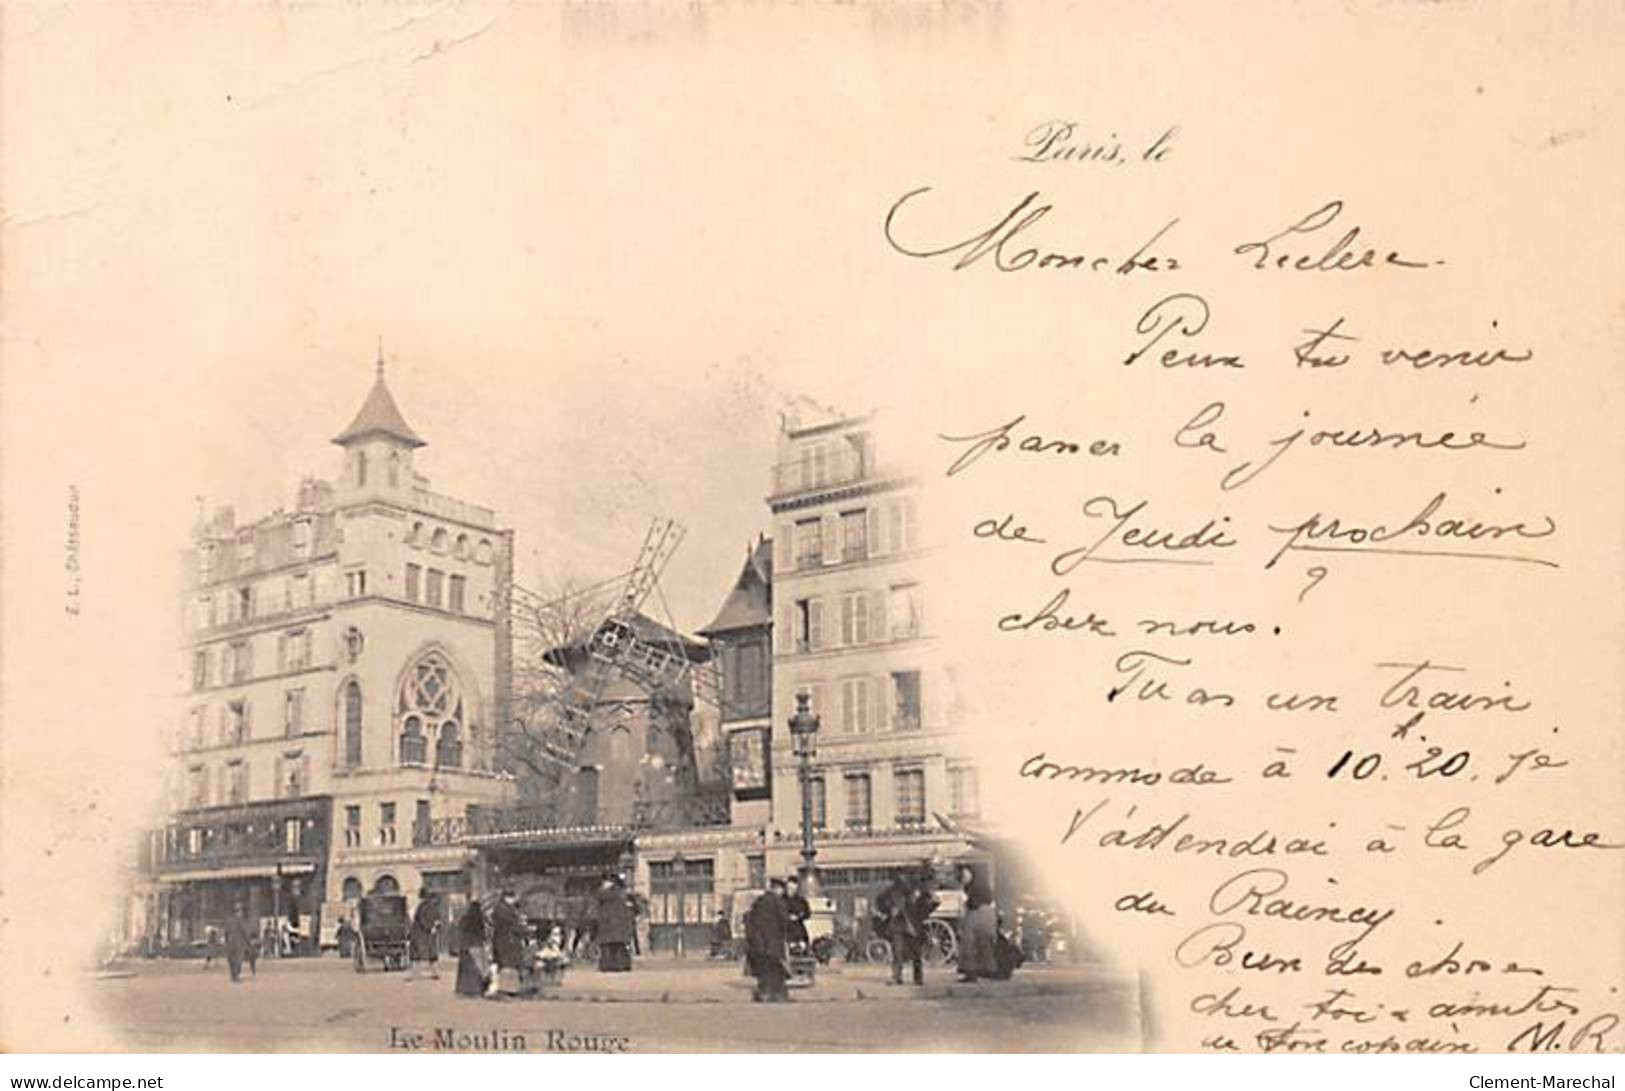 Paris, le
Mon cher Leclerc.
Peux tu venir
passer la journée
de Jeudi prochain
chez nous. ?
Tu as un train
commode à 10h.20. je
t'attendrai à la gare
du Raincy.
Bien des choses
cher toi & amitiés
de ton copain M. R.
Z. L., Châteaudun
Le Moulin Rouge
delcampe.net
Clement-Marechal